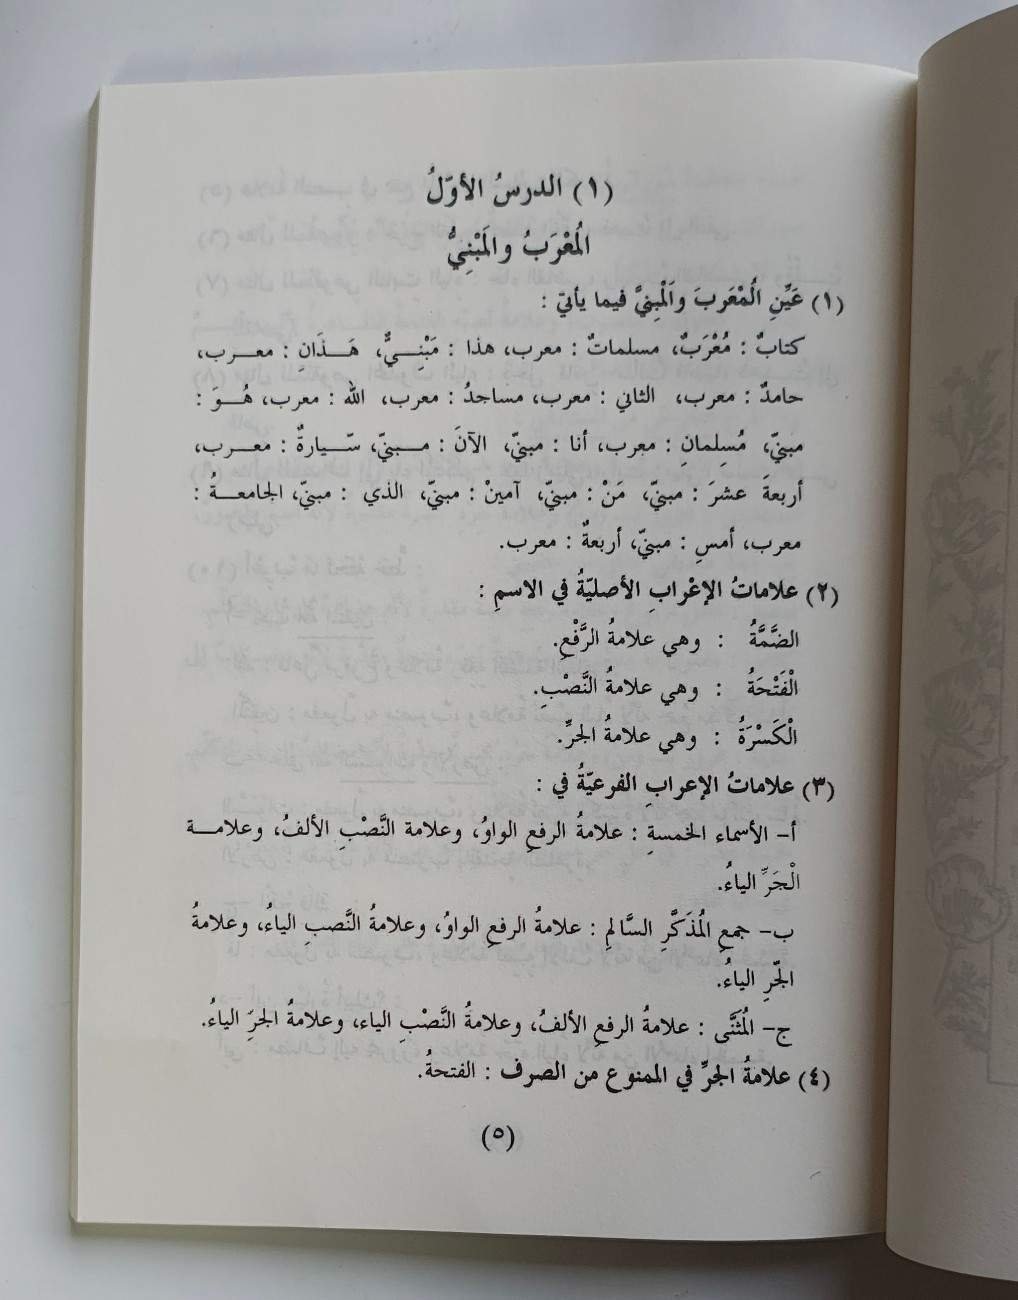 (١) الدرسُ الأوّلُ
الْمُعْرَبُ والْمَبْنِيُّ
(١) عَيِّنِ الْمُعْرَبَ والْمَبْنِيَّ فيما يأتيّ :
كتابٌ : مُعْرَبٌ، مسلماتٌ : معرب، هذا : مَبْنِــيٌّ، هَـذَانِ : معـــرب،
حامدٌ : معرب، الثاني : معرب، مساجدُ : معرب، الله : معرب، هُــوَ :
مبنيّ، مُسلِمانِ : معرب، أنا : مبنيّ، الآنَ : مـــبنيّ، سّـــيارةٌ : معـــرب،
أربعةَ عشرَ : مبنيّ، مَنْ : مبنيّ، آمينْ : مبنيّ، الذي : مبنيّ، الجامعـــةُ :
معرب، أمسِ : مبنيّ، أربعةٌ : معرب.
(٢) علاماتُ الإعْرابِ الأصليّةُ في الاسمِ :
الضَّمَّةُ : وهي علامةُ الرَّفْعِ.
الْفَتْحَةُ : وهي علامةُ النَّصْبِ.
الْكَسْرَةُ : وهي علامةُ الجرِّ.
(٣) علاماتُ الإعرابِ الفرعيّةُ في :
أ– الأسماء الخمسةِ : علامةُ الرفعِ الواوُ، وعلامة النَّصْبِ الألفُ، وعلامــة
الْجَرِّ الياءُ.
ب– جمعِ الْمُذَكَّرِ السَّالمِ : علامةُ الرفعِ الواوُ، وعلامةُ النَّصبِ الياءُ، وعلامةُ
الجّرِ الياءُ.
ج– الْمُثَنَّى : علامةُ الرفعِ الألفُ، وعلامةُ النَّصْبِ الياء، وعلامةُ الجرَِ الياءُ.
(٤) علامةُ الجرِّ في الممنوع من الصرف : الفتحةُ.
(٥)